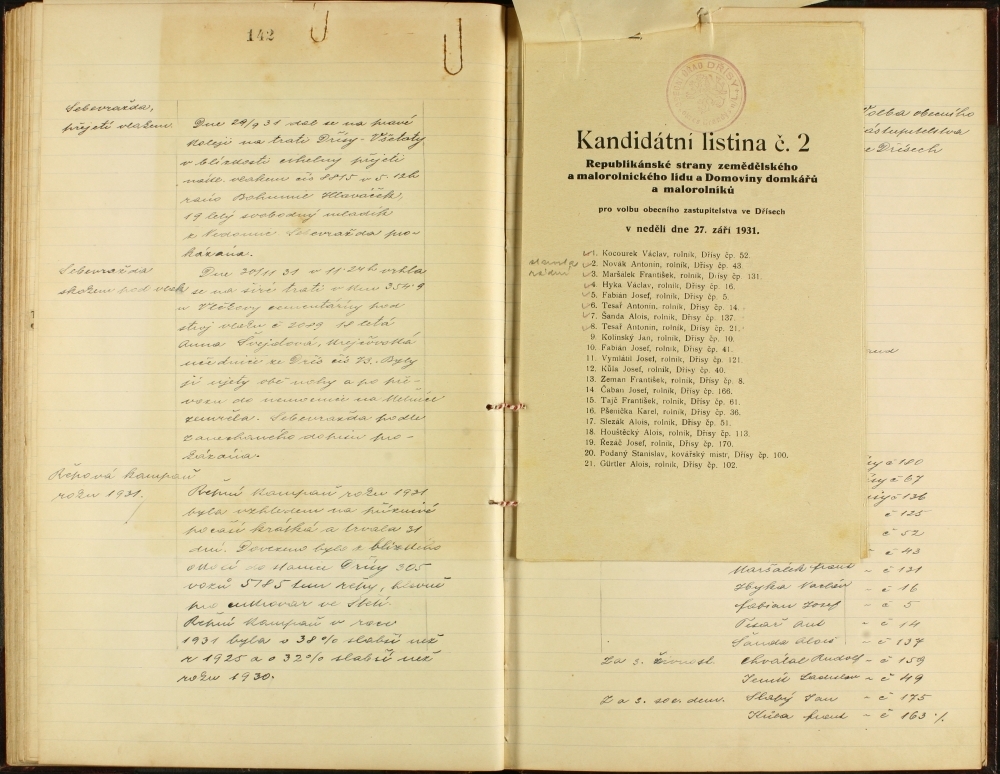 142
Sebevražda,
přejetí vlakem
Dne 29/9 31 dal se na pravé
koleji na trati Dřísy - Všetaty
v blízkosti cihelny přejeti
nákl. vlakem čís 8815 v 5.12h
ráno Bohumil Hlaváček,
19 letý svobodný mladík
z Nedomic Sebevražda pro-
kázána.
Sebevražda
skokem pod vlak
Dne 20/11 31 v 11.24h vrhla
se na širé trati v km 354.9
u Všetaty
vlaku č 2089 18 letá
Anna Švejdová, krejčovská
učednice ze Dřís čís 73. Byly
jí ujety obě nohy a po pře-
vozu do nemocnice na Mělníce
zemřela. Sebevražda podle
zanechaného dopisu pro-
kázána.
Řepová kampaň
roku 1931.
Řepní kampaň roku 1931
byla vzhledem na příznivé
počasí krátká a trvala 31
dní. Dovezeno bylo z blízkého
okolí do stanice Dřísy 305
vozů 5185 tun řepy, hlavně
pro cukrovar ve
Řepní kampaň v roce
1931 byla o 38% slabší než
r 1925 a o 32% slabší než
roku 1930.
Kandidátní listina č. 2
Republikánské strany zemědělského
a malorolnického lidu a Domoviny domkářů
a malorolníků
pro volbu obecního zastupitelstva ve Dřísech
v neděli dne 27. září 1931.
1. Kocourek Václav, rolník, Dřísy čp. 52.
2. Novák Antonín, rolník, Dřísy čp. 43.
3. Maršálek František, rolník, Dřísy čp. 131.
4. Hyka Václav, rolník, Dřísy čp. 16.
5. Fabian Josef, rolník, Dřísy čp. 5.
6. Tesař Antonín, rolník, Dřísy čp. 14.
7. Šanda Alois, rolník, Dřísy čp. 137.
8. Tesař Antonín, rolník, Dřísy čp. 21.
9. Kolínský Jan, rolník, Dřísy čp. 10.
10. Fabián Josef, rolník, Dřísy čp. 41.
11. Vymlátil Josef, rolník, Dřísy čp. 121.
12. Kůla Josef, rolník, Dřísy čp. 40.
13. Zeman František, rolník, Dřísy čp. 8.
14. Čaban Josef, rolník, Dřísy čp. 166.
15. Tajč František, rolník, Dřísy čp. 61.
16. Pšenička Karel, rolník, Dřísy čp. 36.
17. Slezák Alois, rolník, Dřísy čp. 51.
18. Houštěcký Alois, rolník, Dřísy čp. 113.
19. Řezáč Josef, rolník, Dřísy čp. 170.
20. Podaný Stanislav, kovářský mistr, Dřísy čp. 100.
21. Gürtler Alois, rolník, Dřísy čp. 102.
Volba obecního
zastupitelstva
v Dřísech
č 180
č 67
č 136
č 125
č 52
č 43
Maršálek Frant - č 131
Hyka Václav - č 16
Fabian Josef - č 5
Tesař Ant - č 14
Šanda Alois - č 137
Za s. živnost. Chvátal Rudolf - č 159
Ladislav - č 49
Za s. soc. dem. Slabý Jan - č 175
Kůla Frant - č 163 ·/.